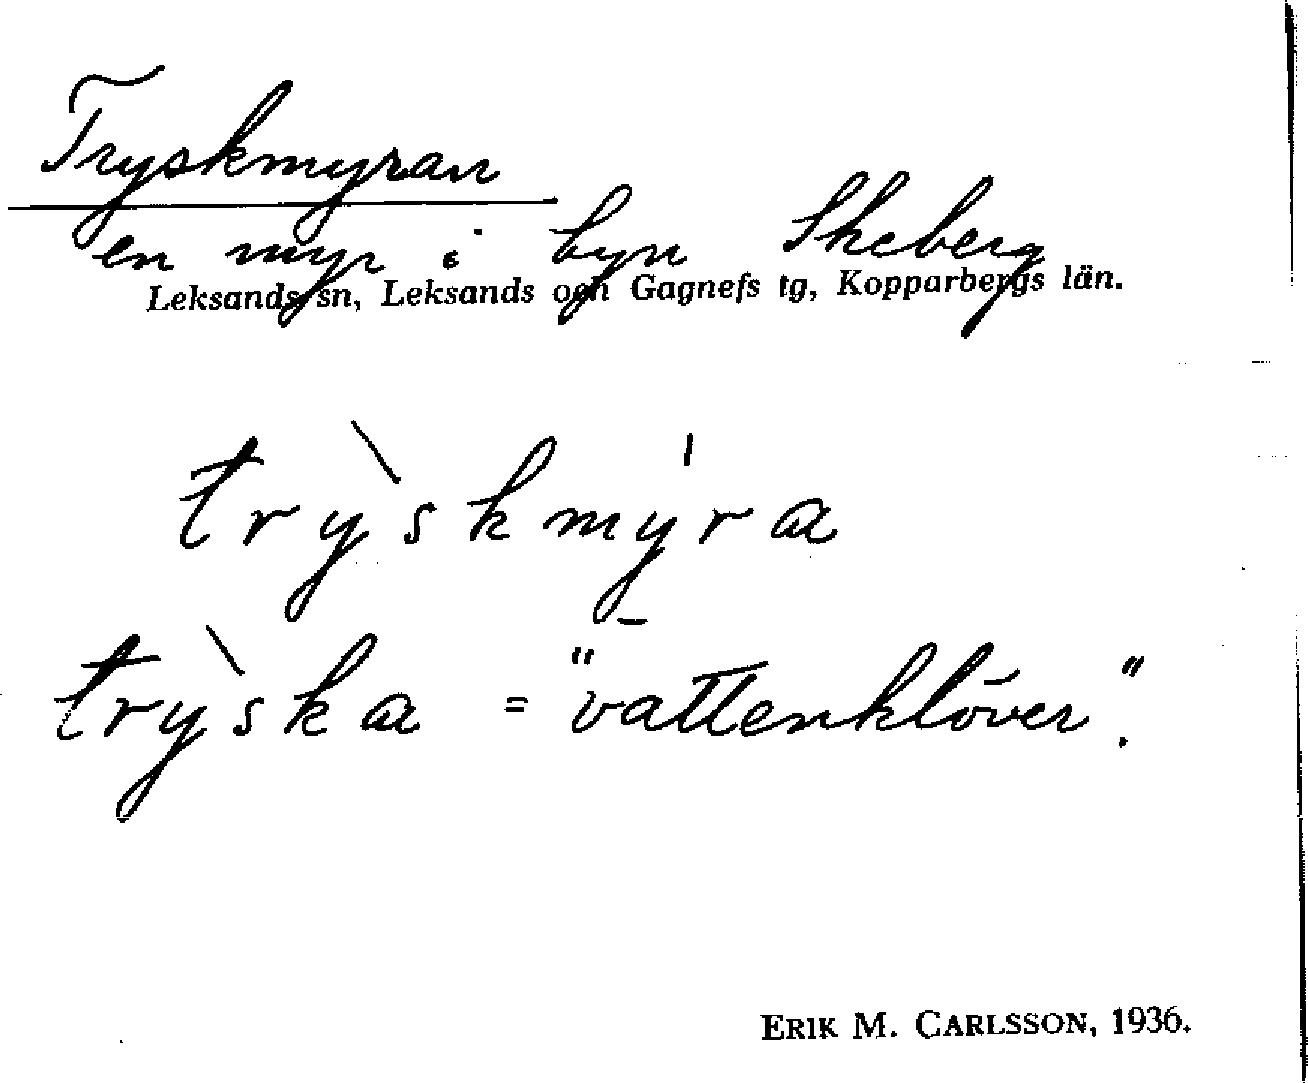 Tryskmyran
en myr i byn Skeberg
Leksands sn, Leksands och Gagnefs tg, Kopparbergs län.
trỳskmy̍ra
trỳska = "vattenklöver".
ERIK M. CARLSSON, 1936.